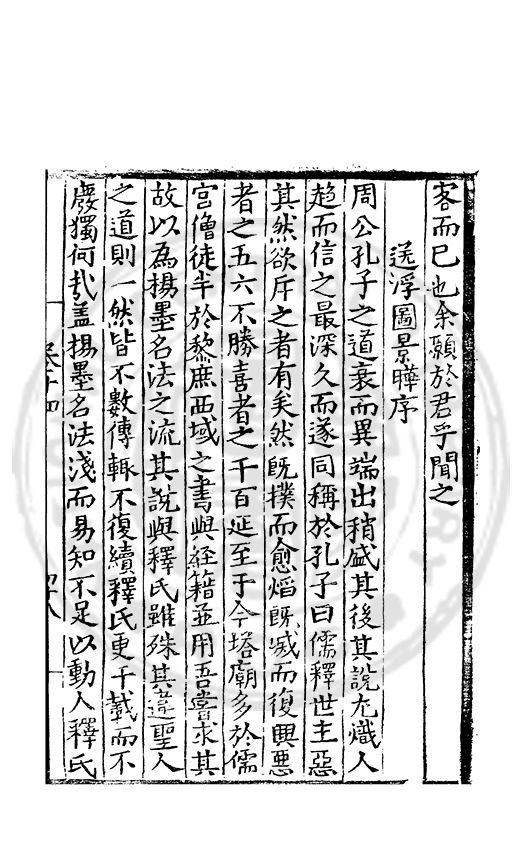 客而已也余願於君乎聞之
送浮圖景曄序
周公孔子之道衰而異端出稍盛其後其說尤熾人
趋而信之最深久而遂同稱於孔子曰儒釋世主惡
其然欲斥之者有矣然旣撲而愈熖旣滅而復興惡
者之五六不勝喜者之千百延至于今塔廟多於儒
宮僧徒半於黎庶西域之書與經籍並用吾嘗求其
故以為揚墨名法之流其說與釋氏雖殊其違聖人
之道則一然皆不數傳輒不復續釋氏更千載而不
廢獨何㢤盖揚墨名法淺而易知不足以動人釋氏
卷十四
四十八